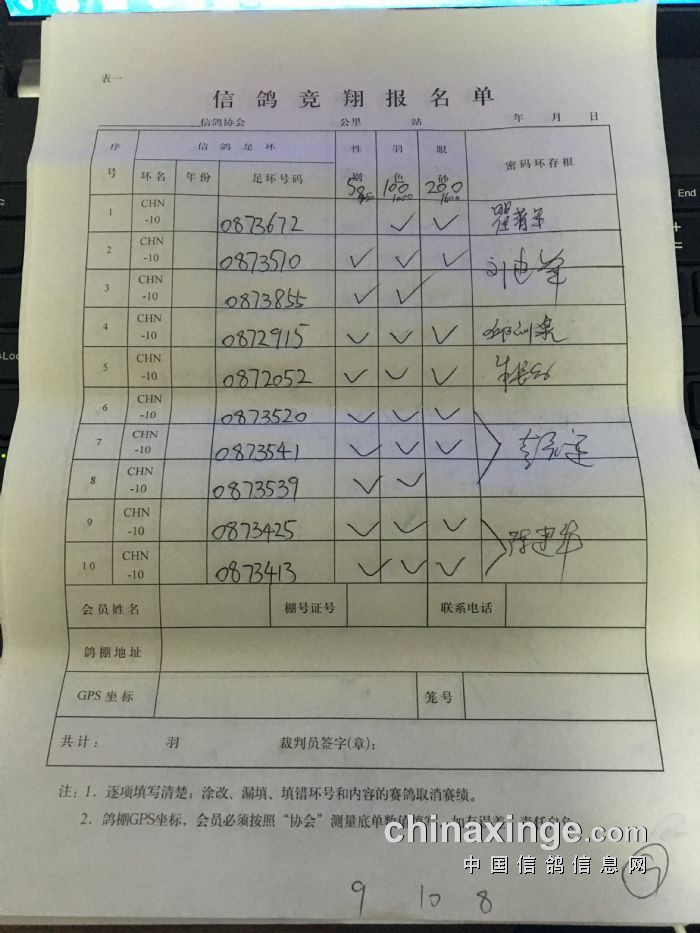 表一
信鸽竞翔报名单
信鸽协会 公里 站 年 月 日
序号 信鸽足环 性别 羽色 眼砂 密码环存根
环名 年份 足环号码 50 100 200
1 CHN-10 0873672 ✓ ✓
2 CHN-10 0873510 ✓ ✓ ✓
3 CHN-10 0873855 ✓ ✓
4 CHN-10 0872915 ✓ ✓ ✓
5 CHN-10 0872052 ✓ ✓ ✓
6 CHN-10 0873520 ✓ ✓ ✓
7 CHN-10 0873541 ✓ ✓ ✓
8 CHN-10 0873539 ✓ ✓
9 CHN-10 0873425 ✓ ✓ ✓ 陈建华
10 CHN-10 0873413 ✓ ✓ ✓
会员姓名 棚号证号 联系电话
鸽棚地址
GPS坐标 笼号
共计： 羽 裁判员签字(章)：
注：1．逐项填写清楚；涂改、漏填、填错环号和内容的赛鸽取消赛绩。
2．鸽棚GPS坐标，会员必须按照“协会”测量底单数值填写，如有误差，责任自负
chinaxinge.com
中国信鸽信息网
9 10 8
End